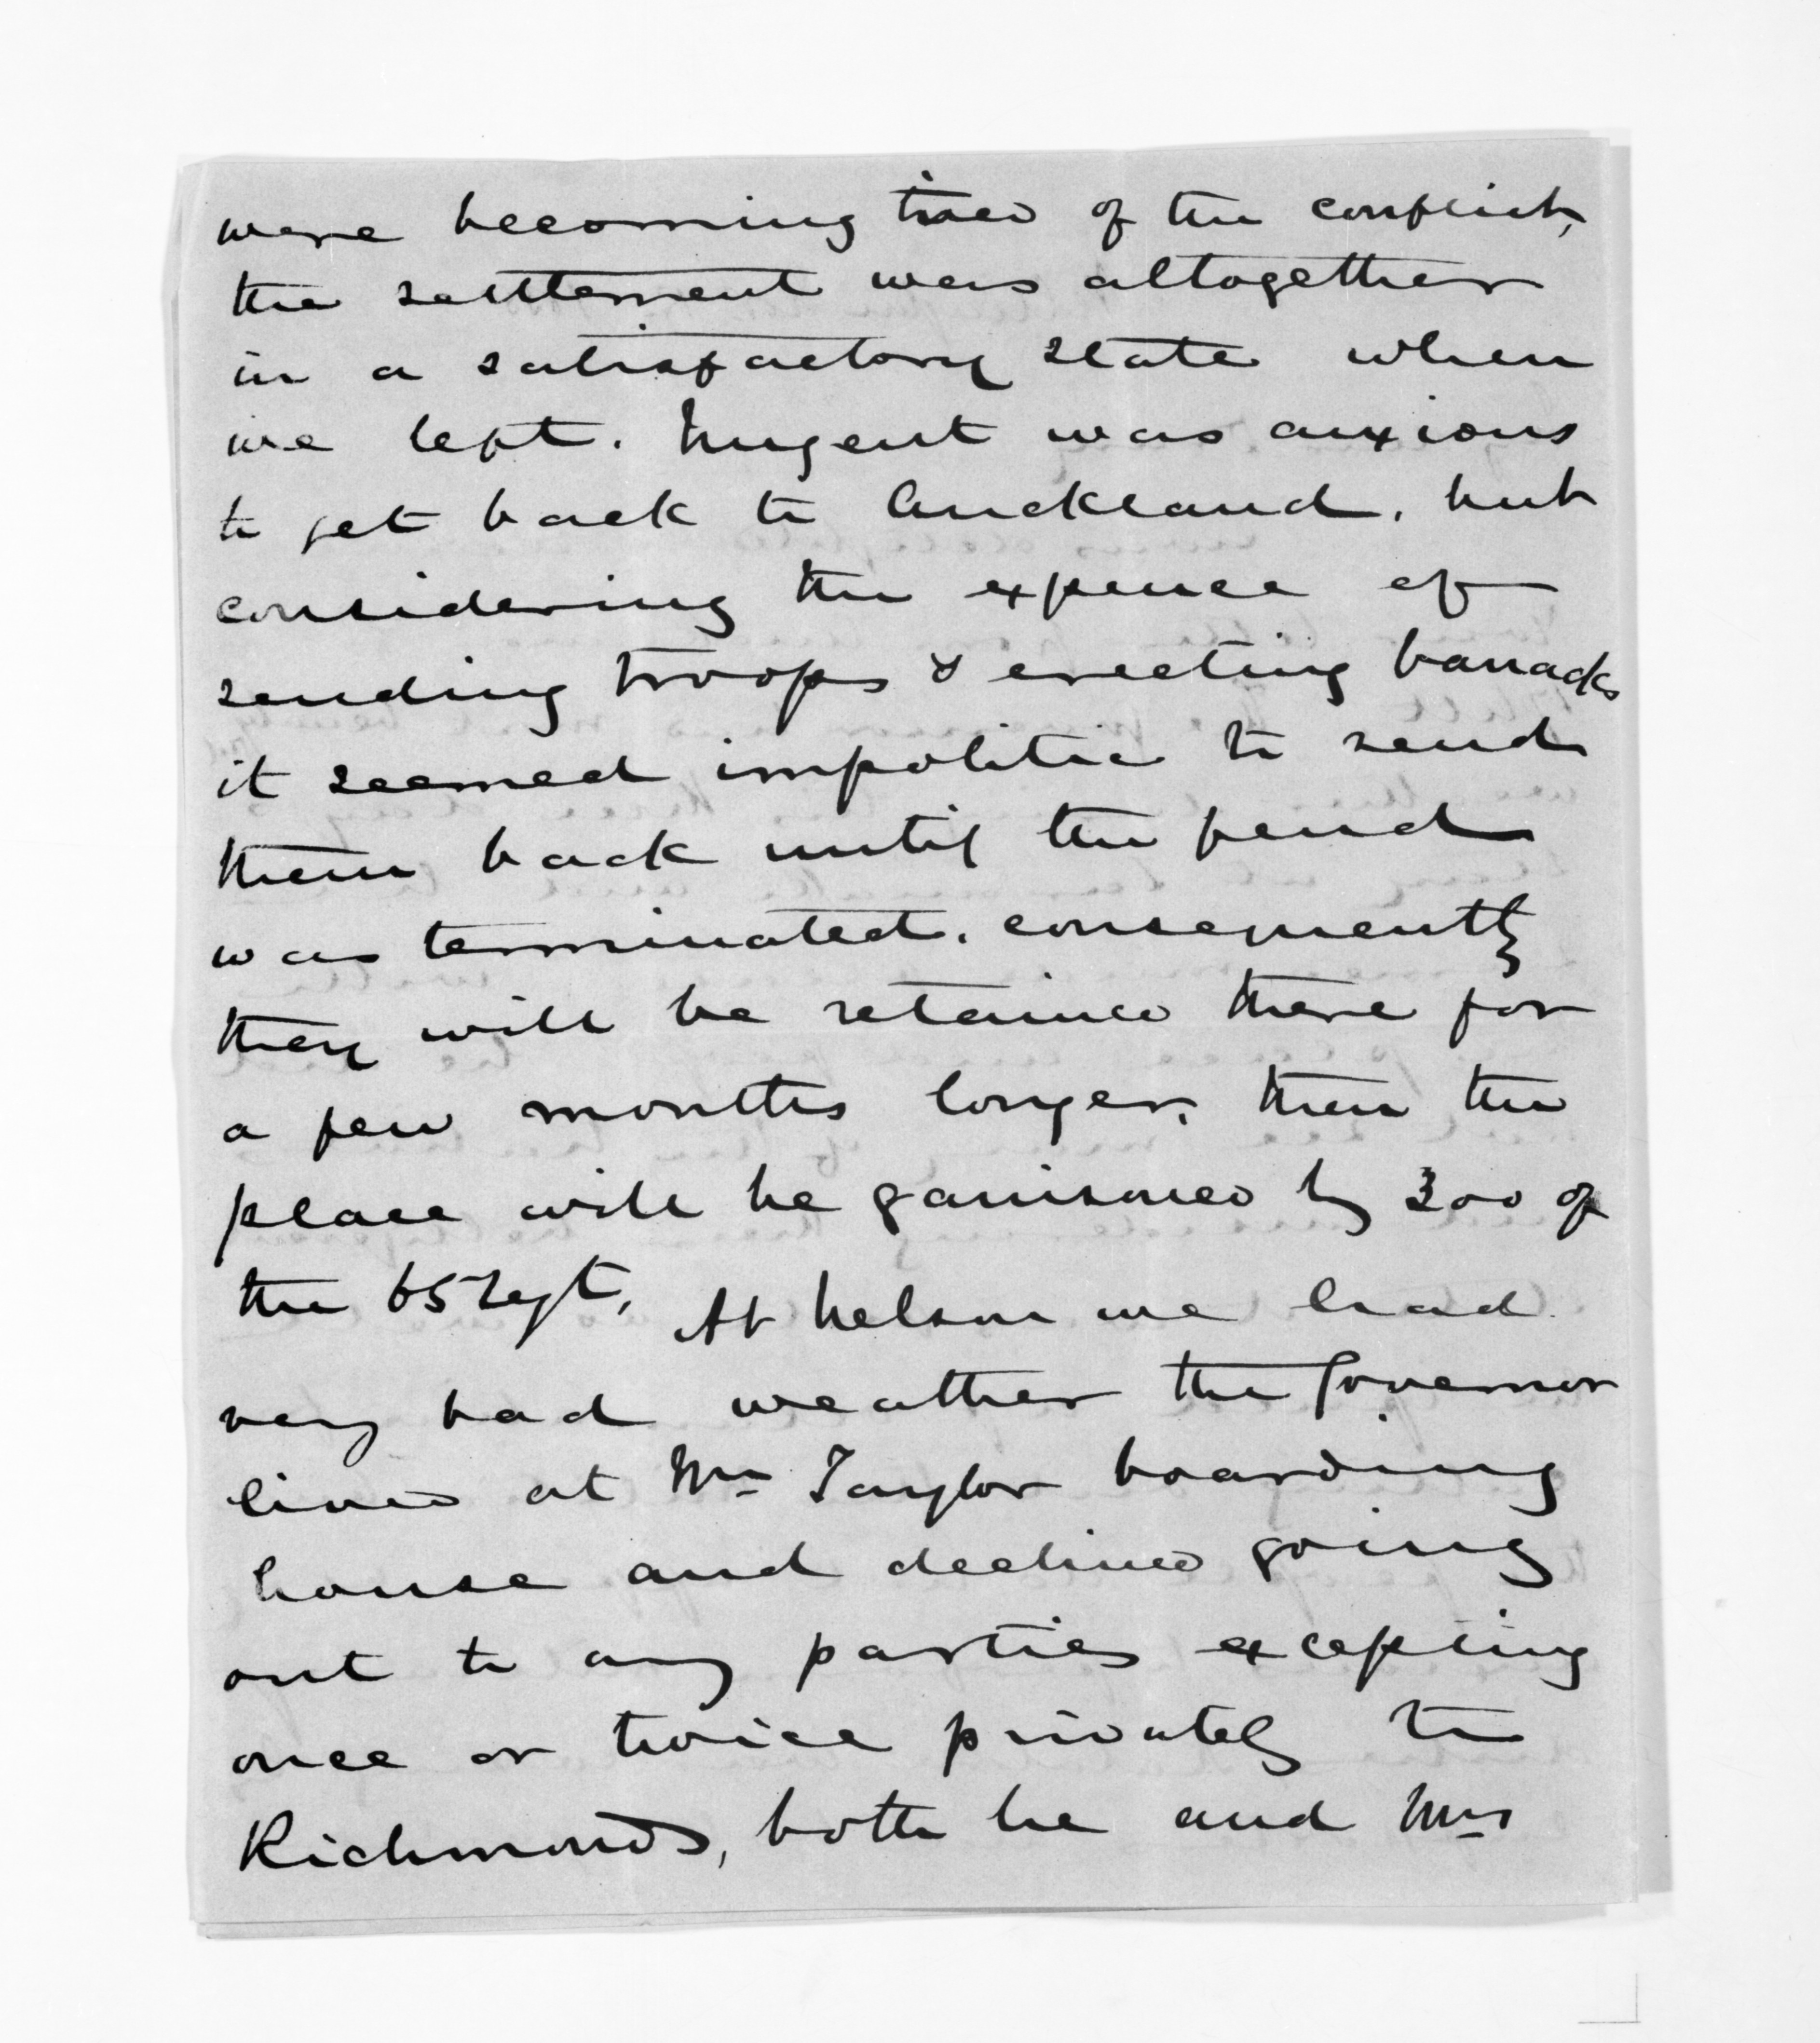 were becoming tired of the conflict,
the settlement was altogether
in a satisfactory state when
we left. Nugent was anxious
to get back to Auckland, but
considering the expence of
sending troops & erecting barracks
it seemed impolitic to send
them back until the feud
was terminated. consequently
they will be retained there for
a few months longer, then the
place will be garrisoned by 300 of
the 65 Regt, At Nelson we had
very bad weather the Governor
lived at Mrs Taylor boarding
house and declined going
out to any parties excepting
once or twice privately to
Richmonds, both he and Mrs